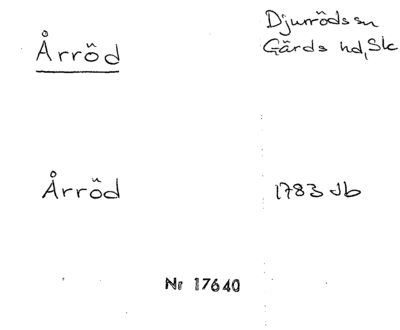 Årröd
Djurröds sn
Gärds hd, Sk
Årröd
1783 Jb
Nr 17640